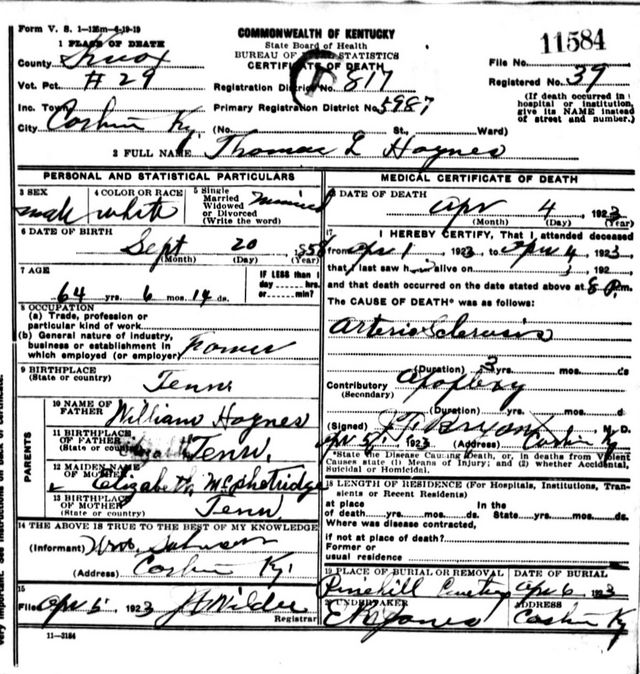 Form V. S. 1-125m-6-19-19
COMMONWEALTH OF KENTUCKY
State Board of Health
BUREAU OF VITAL STATISTICS
CERTIFICATE OF DEATH
1 PLACE OF DEATH
County Knox
Vot. Pct. #29
Inc. Town
City Corbin Ky. (No. St., Ward)
Registration District No. 817
Primary Registration District No. 5987
File No. 11584
Registered No. 39
(If death occurred in a hospital or institution, give its NAME instead of street and number.)
2 FULL NAME Thomas L Haynes
PERSONAL AND STATISTICAL PARTICULARS
3 SEX male
4 COLOR OR RACE white
5 Single Married Widowed or Divorced (Write the word) Married
6 DATE OF BIRTH
Sept 20 1858
(Month) (Day) (Year)
7 AGE
64 yrs. 6 mos. 14 ds.
IF LESS than 1 day hrs. or min?
8 OCCUPATION
(a) Trade, profession or particular kind of work
(b) General nature of industry, business or establishment in which employed (or employer) Farmer
9 BIRTHPLACE
(State or country) Tenn
PARENTS
10 NAME OF FATHER William Haynes
11 BIRTHPLACE OF FATHER (State or country) Tenn.
12 MAIDEN NAME OF MOTHER Elizabeth McPhetridge
13 BIRTHPLACE OF MOTHER (State or country) Tenn
14 THE ABOVE IS TRUE TO THE BEST OF MY KNOWLEDGE
(Informant) Wm.
(Address) Corbin Ky.
15
Filed Apr 5, 1923 Wilder
Registrar
11-3184
MEDICAL CERTIFICATE OF DEATH
DATE OF DEATH
Apr 4, 1923
(Month) (Day) (Year)
17 I HEREBY CERTIFY, That I attended deceased
from Apr 1 1923, to Apr 4, 1923
that I last saw h alive on , 192
and that death occurred on the date stated above at 8 P.m.
The CAUSE OF DEATH* was as follows:
Arterio Sclerosis
(Duration) 3 yrs. mos. ds.
Contributory Apoplexy
(Secondary)
(Duration) yrs. mos. d
(Signed) Bryan M. D.
Apr 5, 1923 (Address) Corbin Ky
*State the Disease Causing Death, or, in deaths from Violent Causes state (1) Means of Injury; and (2) whether Accidental, Suicidal or Homicidal.
18 LENGTH OF RESIDENCE (For Hospitals, Institutions, Transients or Recent Residents)
At place of death yrs. mos. ds. In the State yrs. mos. ds.
Where was disease contracted,
if not at place of death?
Former or usual residence
19 PLACE OF BURIAL OR REMOVAL Pinehill Cemetery
DATE OF BURIAL Apr 6 1923
20 UNDERTAKER Jones
ADDRESS Corbin Ky